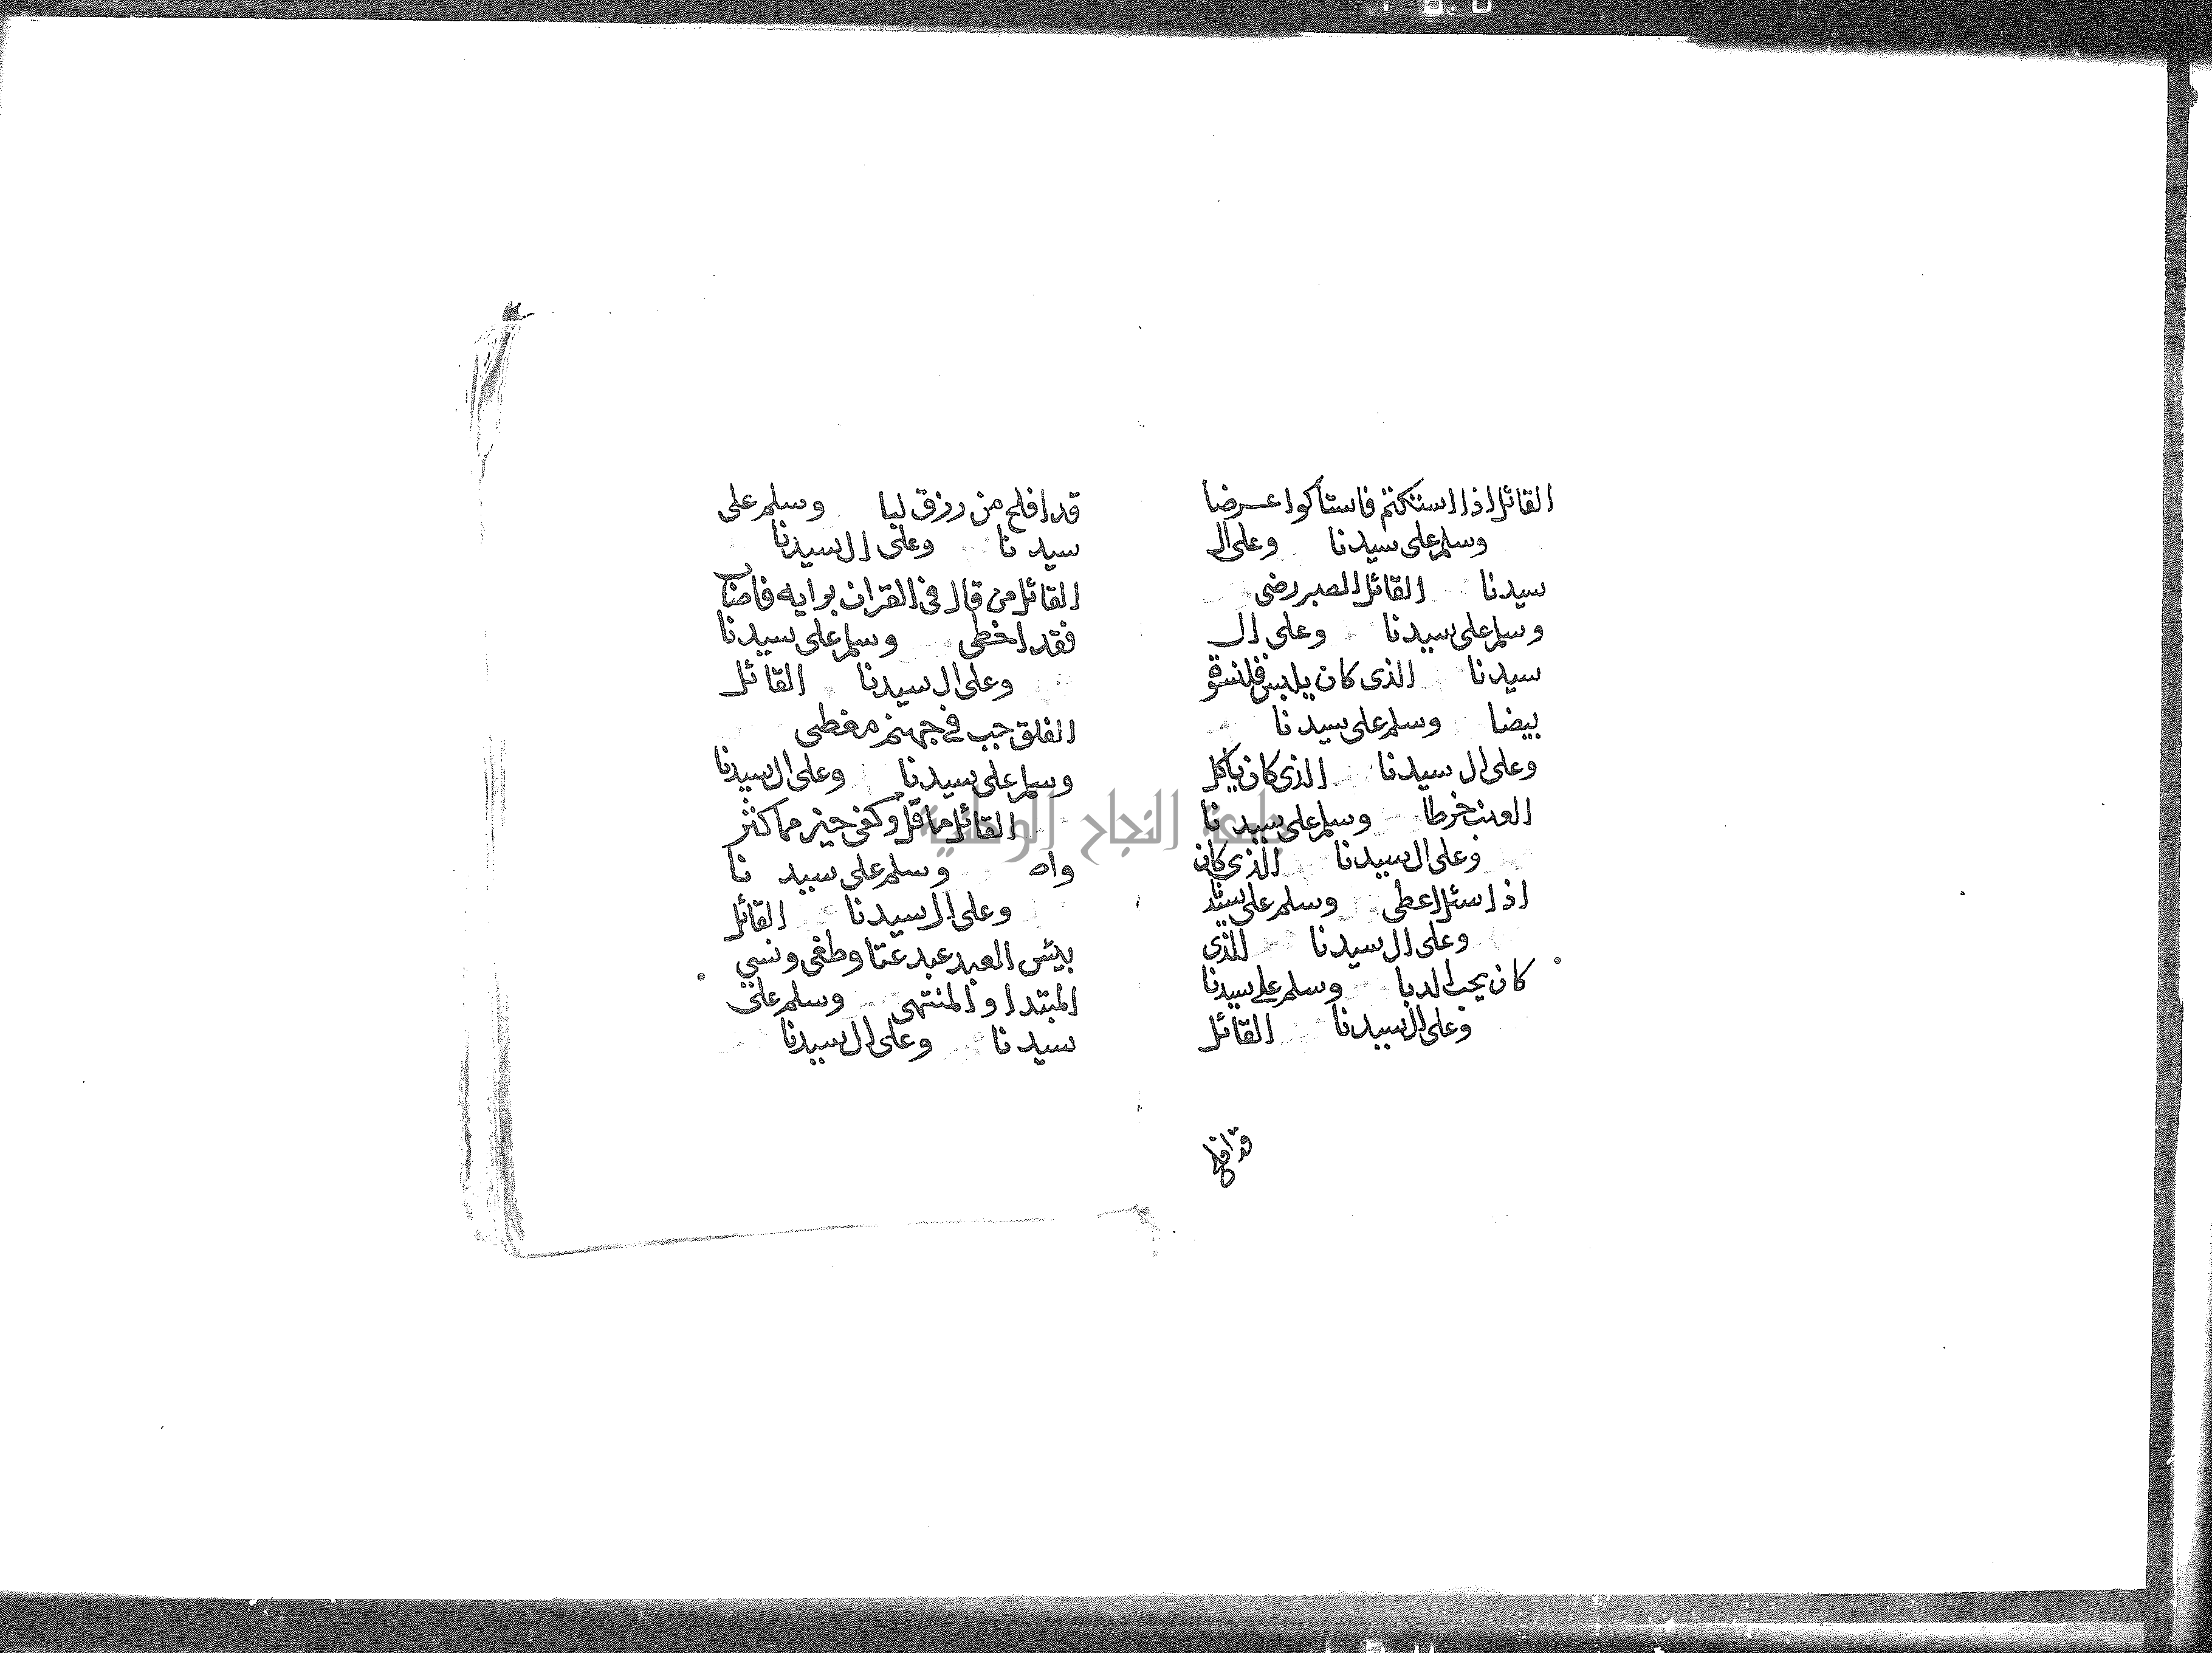 القائل اذا استكتم فاستاكوا عرضا
وسلم على سيدنا وعلى ال
سيدنا القائل الصبر رضى
وسلم على سيدنا وعلى ال
سيدنا الذى كان يلبس قلنسوة
بيضا وسلم على سيدنا
وعلى ال سيدنا الذى كان ياكل
العنب خرطا وسلم على سيدنا
وعلى ال سيدنا الذى كان
اذا سئل اعطى وسلم على سيدنا
وعلى ال سيدنا الذى
كان يحب الدبا وسلم على سيدنا
وعلى ال سيدنا القائل
قد افلح
قد افلح من رزق لبا وسلم على
سيدنا وعلى ال سيدنا
القائل من قال فى القران برايه فاصاب
فقد اخطى وسلم على سيدنا
وعلى ال سيدنا القائل
الفلق جب فى جهنم مغطى
وسلم على سيدنا وعلى ال سيدنا
القائل ما قل وكفى خير مما كثر
وسلم على سيدنا
وعلى ال سيدنا القائل
بيئس العبد عبد عتا وطغى ونسي
المبتدا والمنتهى وسلم على
سيدنا وعلى ال سيدنا
جامعة النجاح الوطنية